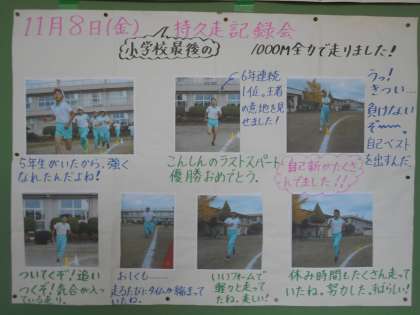 11月8日(金) 持久走記録会
小学校最後の
1000M全力で走りました!
6年連続
1位。王者
の意地を見
せました!
うっ!
きつい…
負けない
ぞ〰。
自己ベスト
を出すんだ。
5年生がいたから、強く
なれたんだよね!
こんしんのラストスパート
優勝おめでとう。
自己新がたくさ
んでました!!!
ついてくぞ!追い
つくぞ!気合が入っ
ている走り。
おしくも……
走るたびにタイムが縮まって
いたね。
いいフォームで
軽々と走って
たね。楽しい!
休み時間もたくさん走って
いたね。努力した、すばらしい!